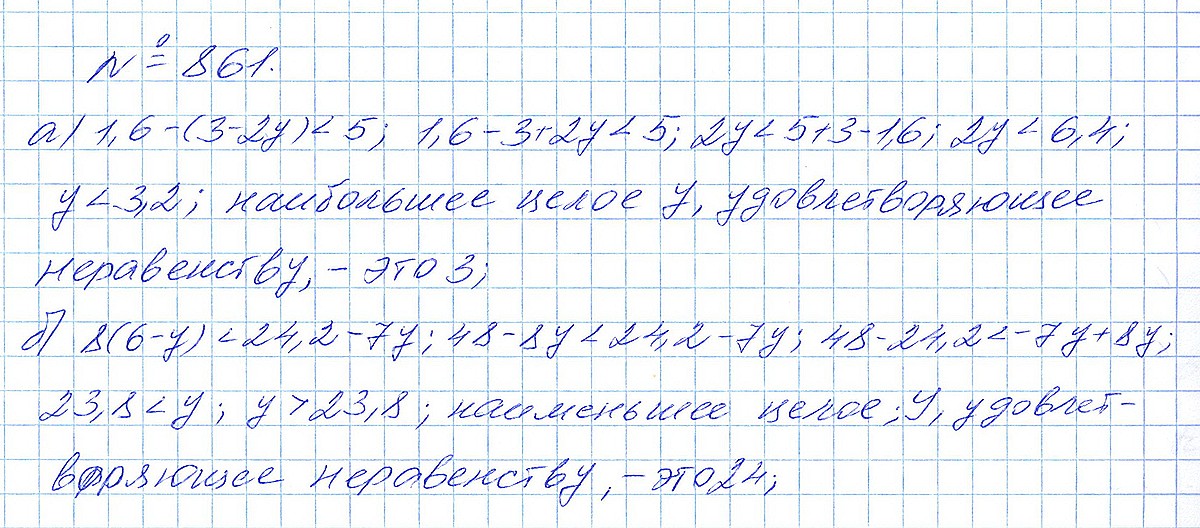 № 861.
а) 1,6-(3-2y)<5; 1,6-3+2y<5; 2y<5+3-1,6; 2y<6,4;
y<3,2; наибольшее целое y, удовлетворяющее
неравенству, - это 3;
б) 8(6-y)<24,2-7y; 48-8y<24,2-7y; 48-24,2<-7y+8y;
23,8<y; y>23,8; наименьшее целое; y, удовлет-
воряющее неравенству, - это 24;